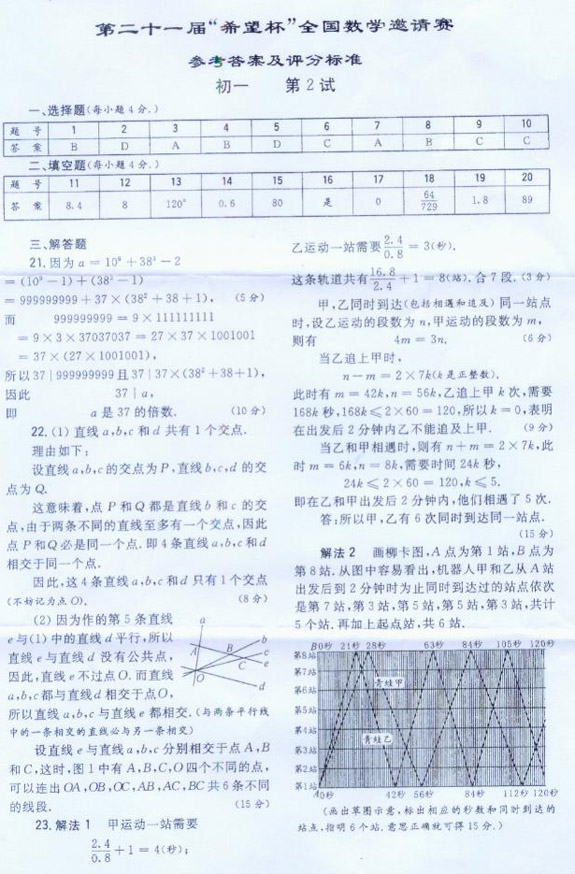 第二十一届“希望杯”全国数学邀请赛
参考答案及评分标准
初一 第2试
一、选择题(每小题4分.)
题 号 1 2 3 4 5 6 7 8 9 10
答 案 B D A B D C A B C C
二、填空题(每小题4分.)
题 号 11 12 13 14 15 16 17 18 19 20
答 案 8.4 8 120° 0.6 80 是 0 64/729 1.8 89
三、解答题
21.因为 a = 10⁹ + 38³ − 2
= (10⁹ − 1) + (38³ − 1)
= 999999999 + 37 × (38² + 38 + 1), (5分)
而 999999999 = 9 × 111111111
= 9 × 3 × 37037037 = 27 × 37 × 1001001
= 37 × (27 × 1001001),
所以 37 | 999999999 且 37 | 37 × (38² + 38 + 1),
因此 37 | a,
即 a 是 37 的倍数. (10分)
22.(1) 直线 a,b,c 和 d 共有 1 个交点.
理由如下:
设直线 a,b,c 的交点为 P,直线 b,c,d 的交
点为 Q.
这意味着,点 P 和 Q 都是直线 b 和 c 的交
点,由于两条不同的直线至多有一个交点,因此
点 P 和 Q 必是同一个点.即 4 条直线 a,b,c 和 d
相交于同一个点.
因此,这 4 条直线 a,b,c 和 d 只有 1 个交点
(不妨记为点 O). (8分)
(2) 因为作的第 5 条直线
e 与(1) 中的直线 d 平行,所以
直线 e 与直线 d 没有公共点,
因此,直线 e 不过点 O.而直线
a,b,c 都与直线 d 相交于点 O,
a
A
B
b
c
C
e
O
d
所以直线 a,b,c 与直线 e 都相交.(与两条平行线
中的一条相交的直线必与另一条相交)
设直线 e 与直线 a,b,c 分别相交于点 A,B
和 C,这时,图 1 中有 A,B,C,O 四个不同的点,
可以连出 OA,OB,OC,AB,AC,BC 共 6 条不同
的线段. (15分)
23. 解法 1 甲运动一站需要
2.4/0.8 + 1 = 4(秒);
乙运动一站需要 2.4/0.8 = 3(秒).
这条轨道共有 16.8/2.4 + 1 = 8(站),合 7 段.(3分)
甲,乙同时到达(包括相遇和追及) 同一站点
时,设乙运动的段数为 n,甲运动的段数为 m,
则有 4m = 3n. (6分)
当乙追上甲时,
n − m = 2 × 7k(k是正整数).
此时有 m = 42k,n = 56k,乙追上甲 k 次,需要
168k 秒,168k ⩽ 2 × 60 = 120,所以 k = 0,表明
在出发后 2 分钟内乙不能追及上甲. (9分)
当乙和甲相遇时,则有 n + m = 2 × 7k,此
时 m = 6k,n = 8k,需要时间 24k 秒,
24k ⩽ 2 × 60 = 120,k ⩽ 5.
即在乙和甲出发后 2 分钟内,他们相遇了 5 次.
答:所以甲,乙有 6 次同时到达同一站点.
(15分)
解法 2 画柳卡图,A 点为第 1 站,B 点为
第 8 站.从图中容易看出,机器人甲和乙从 A 站
出发后到 2 分钟时为止同时到达过的站点依次
是第 7 站,第 3 站,第 5 站,第 5 站,第 3 站,共计
5 个站.再加上起点站,共 6 站.
B 0秒 21秒 28秒 63秒 84秒 105秒 120秒
第8站
第7站
第6站
第5站
第4站
第3站
第2站
第1站
青蛙甲
青蛙乙
A 0秒 42秒 56秒 84秒 112秒 120秒
(画出草图示意,标出相应的秒数和同时到达的
站点,指明 6 个站.意思正确就可得 15 分.)